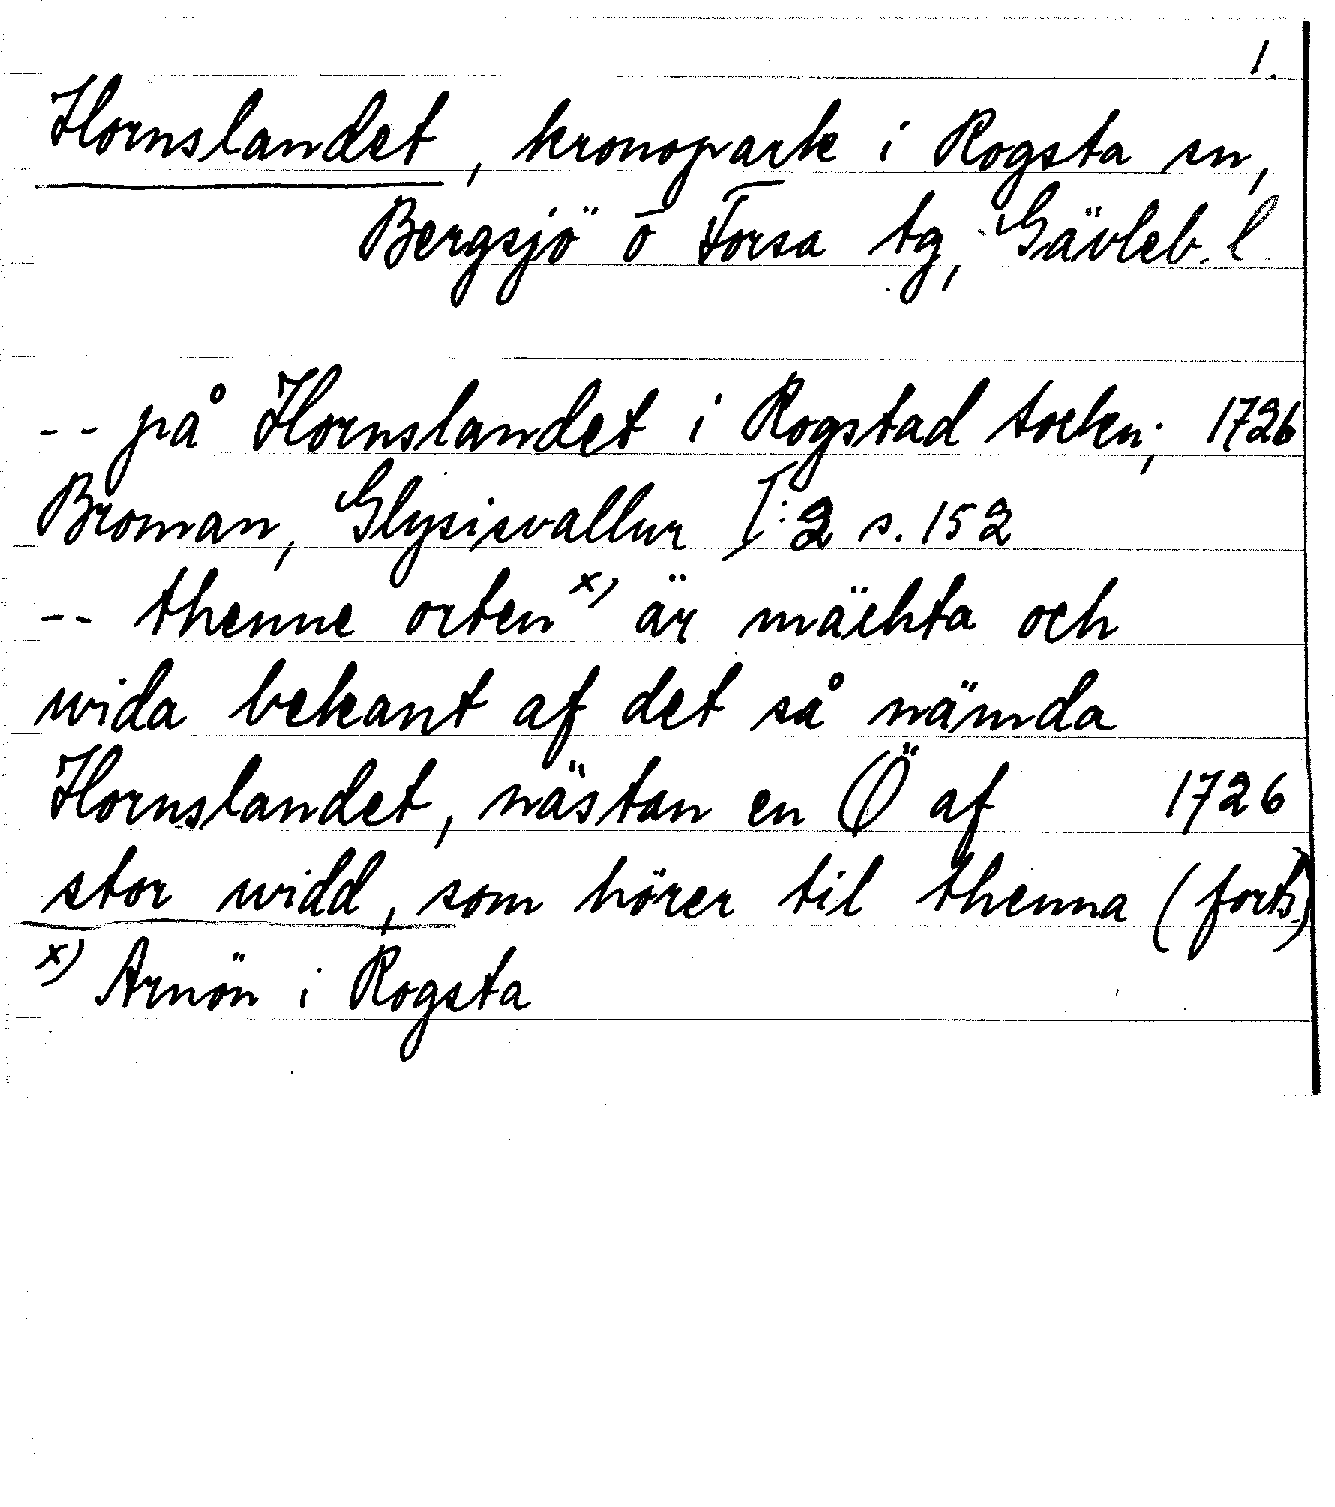 1.
Hornslandet, kronopark i Rogsta sn,
Bergsjö o Forsa tg, Gävleb. l
-- på Hornslandet i Rogstad sockn; 1726
Broman, Glysisvallur I:2 s. 152
-- thenne orten x) är mächta och
wida bekant af det så nämda
Hornslandet, nästan en Ö af 1726
stor widd, som hörer til thenna (forts)
x) Arnön i Rogsta